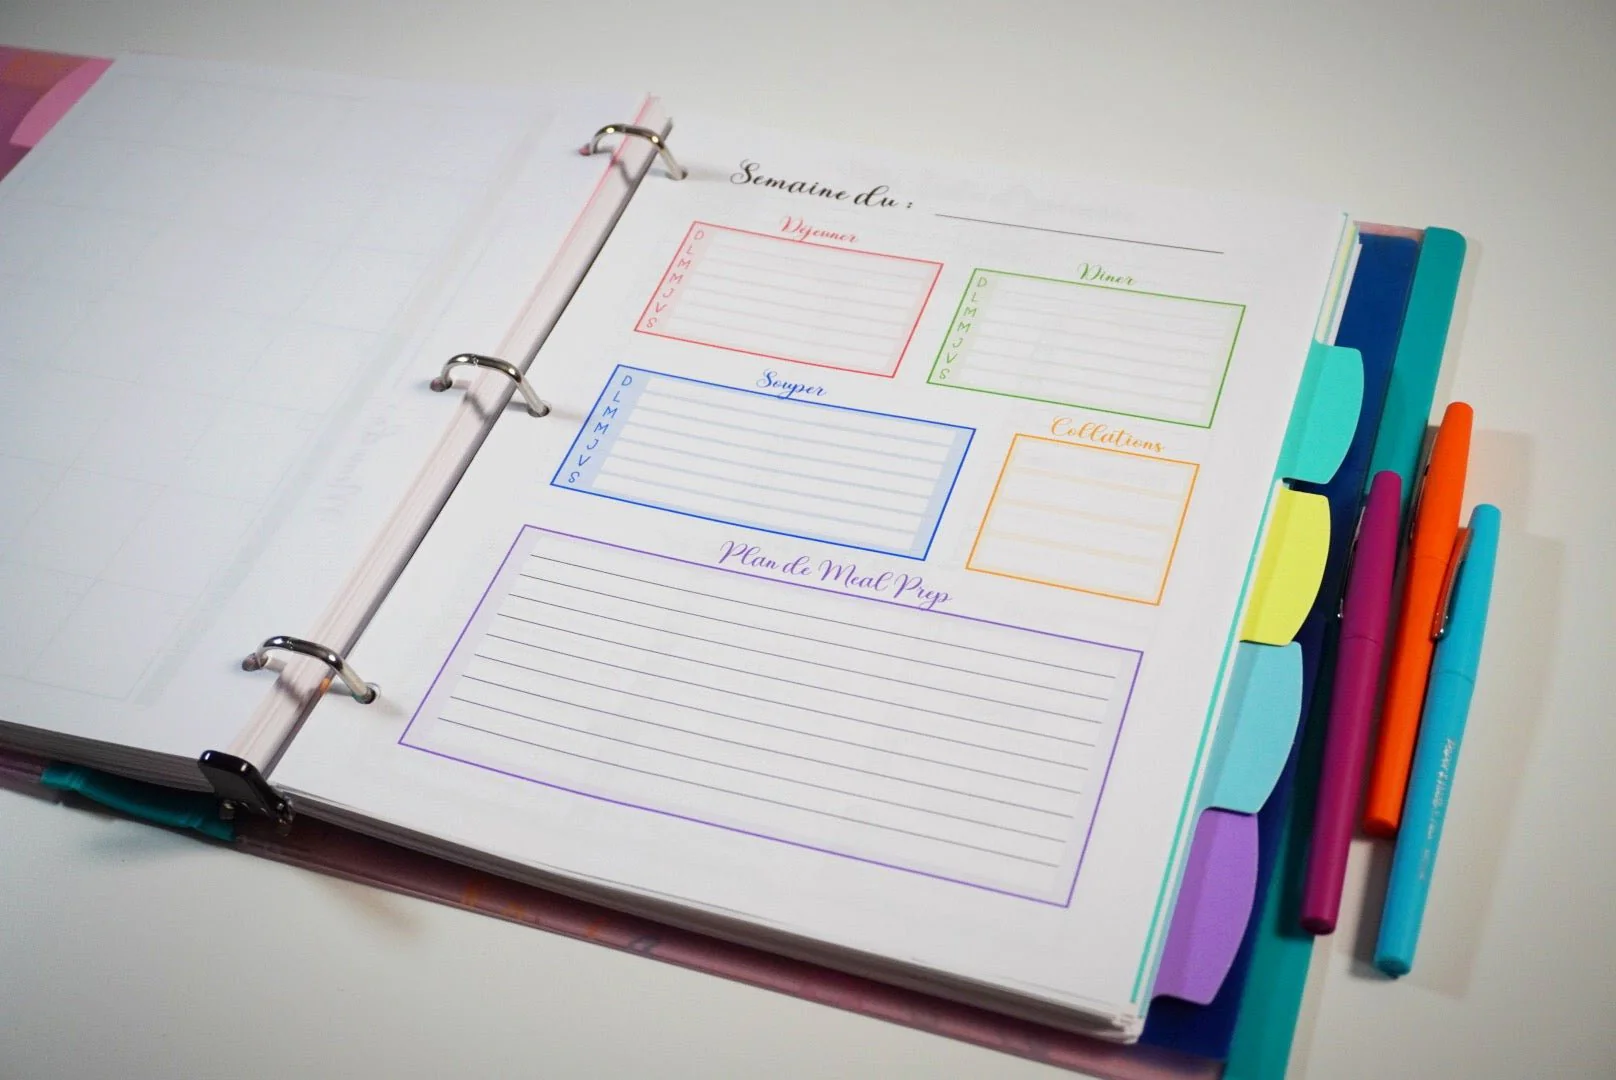 Semaine du :
Déjeuner
D
L
M
M
J
V
S
Dîner
D
L
M
M
J
V
S
Souper
D
L
M
M
J
V
S
Collations
Plan de Meal Prep